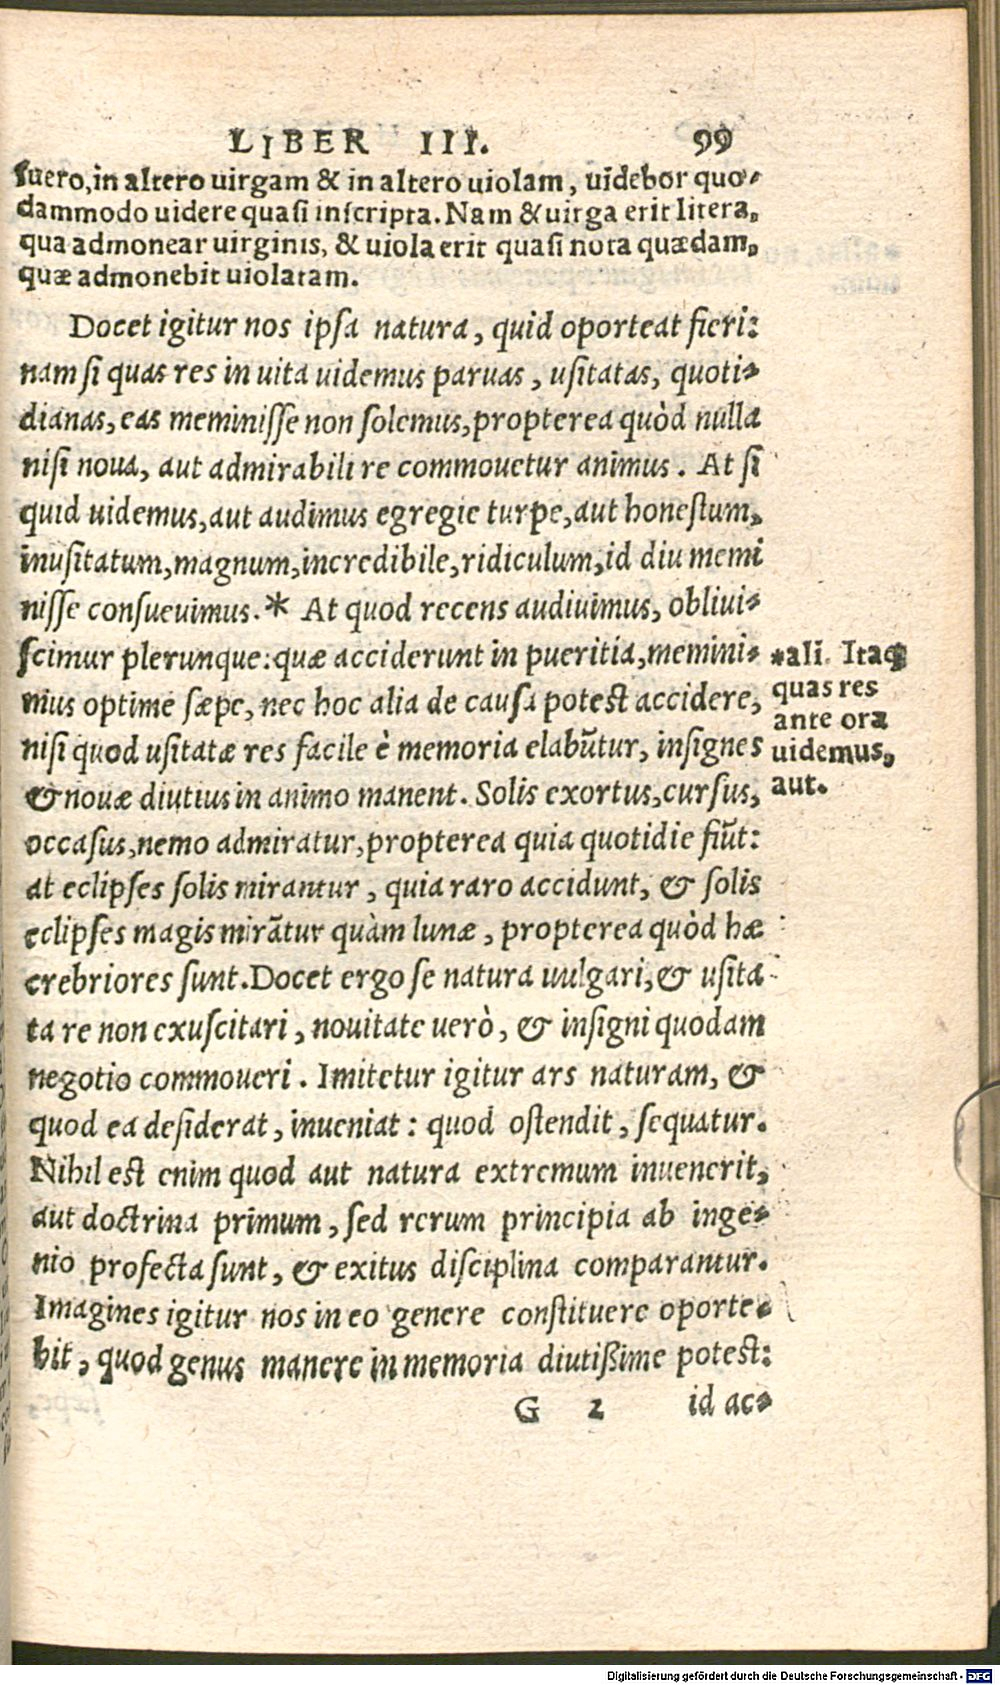 LIBER III. 99
fuero, in altero uirgam & in altero uiolam, uidebor quo-
dammodo uidere quasi inscripta. Nam & uirga erit litera,
qua admonear uirginis, & uiola erit quasi nota quædam,
quæ admonebit uiolatam.
Docet igitur nos ipsa natura, quid oporteat fieri:
nam si quas res in uita uidemus paruas, usitatas, quoti-
dianas, eas meminisse non solemus, propterea quòd nulla
nisi noua, aut admirabili re commouetur animus. At si
quid uidemus, aut audimus egregie turpe, aut honestum,
inusitatum, magnum, incredibile, ridiculum, id diu memi
nisse consueuimus.* At quod recens audiuimus, obliui-
scimur plerunque: quæ acciderunt in pueritia, memini-
mus optime sæpe, nec hoc alia de causa potest accidere,
nisi quod usitatæ res facile è memoria elabũtur, insignes
& nouæ diutius in animo manent. Solis exortus, cursus,
occasus, nemo admiratur, propterea quia quotidie fiũt:
at eclipses solis mirantur, quia raro accidunt, & solis
eclipses magis mirãtur quàm lunæ, propterea quòd hæ
crebriores sunt. Docet ergo se natura uulgari, & usita
ta re non exuscitari, nouitate uerò, & insigni quodam
negotio commoueri. Imitetur igitur ars naturam, &
quod ea desiderat, inueniat: quod ostendit, sequatur.
Nihil est enim quod aut natura extremum inuenerit,
aut doctrina primum, sed rerum principia ab inge-
nio profecta sunt, & exitus disciplina comparantur.
Imagines igitur nos in eo genere constituere oporte-
bit, quod genus manere in memoria diutißime potest:
G 2 id ac-
*ali. Itaq;
quas res
ante ora
uidemus,
aut.
Digitalisierung gefördert durch die Deutsche Forschungsgemeinschaft - DFG